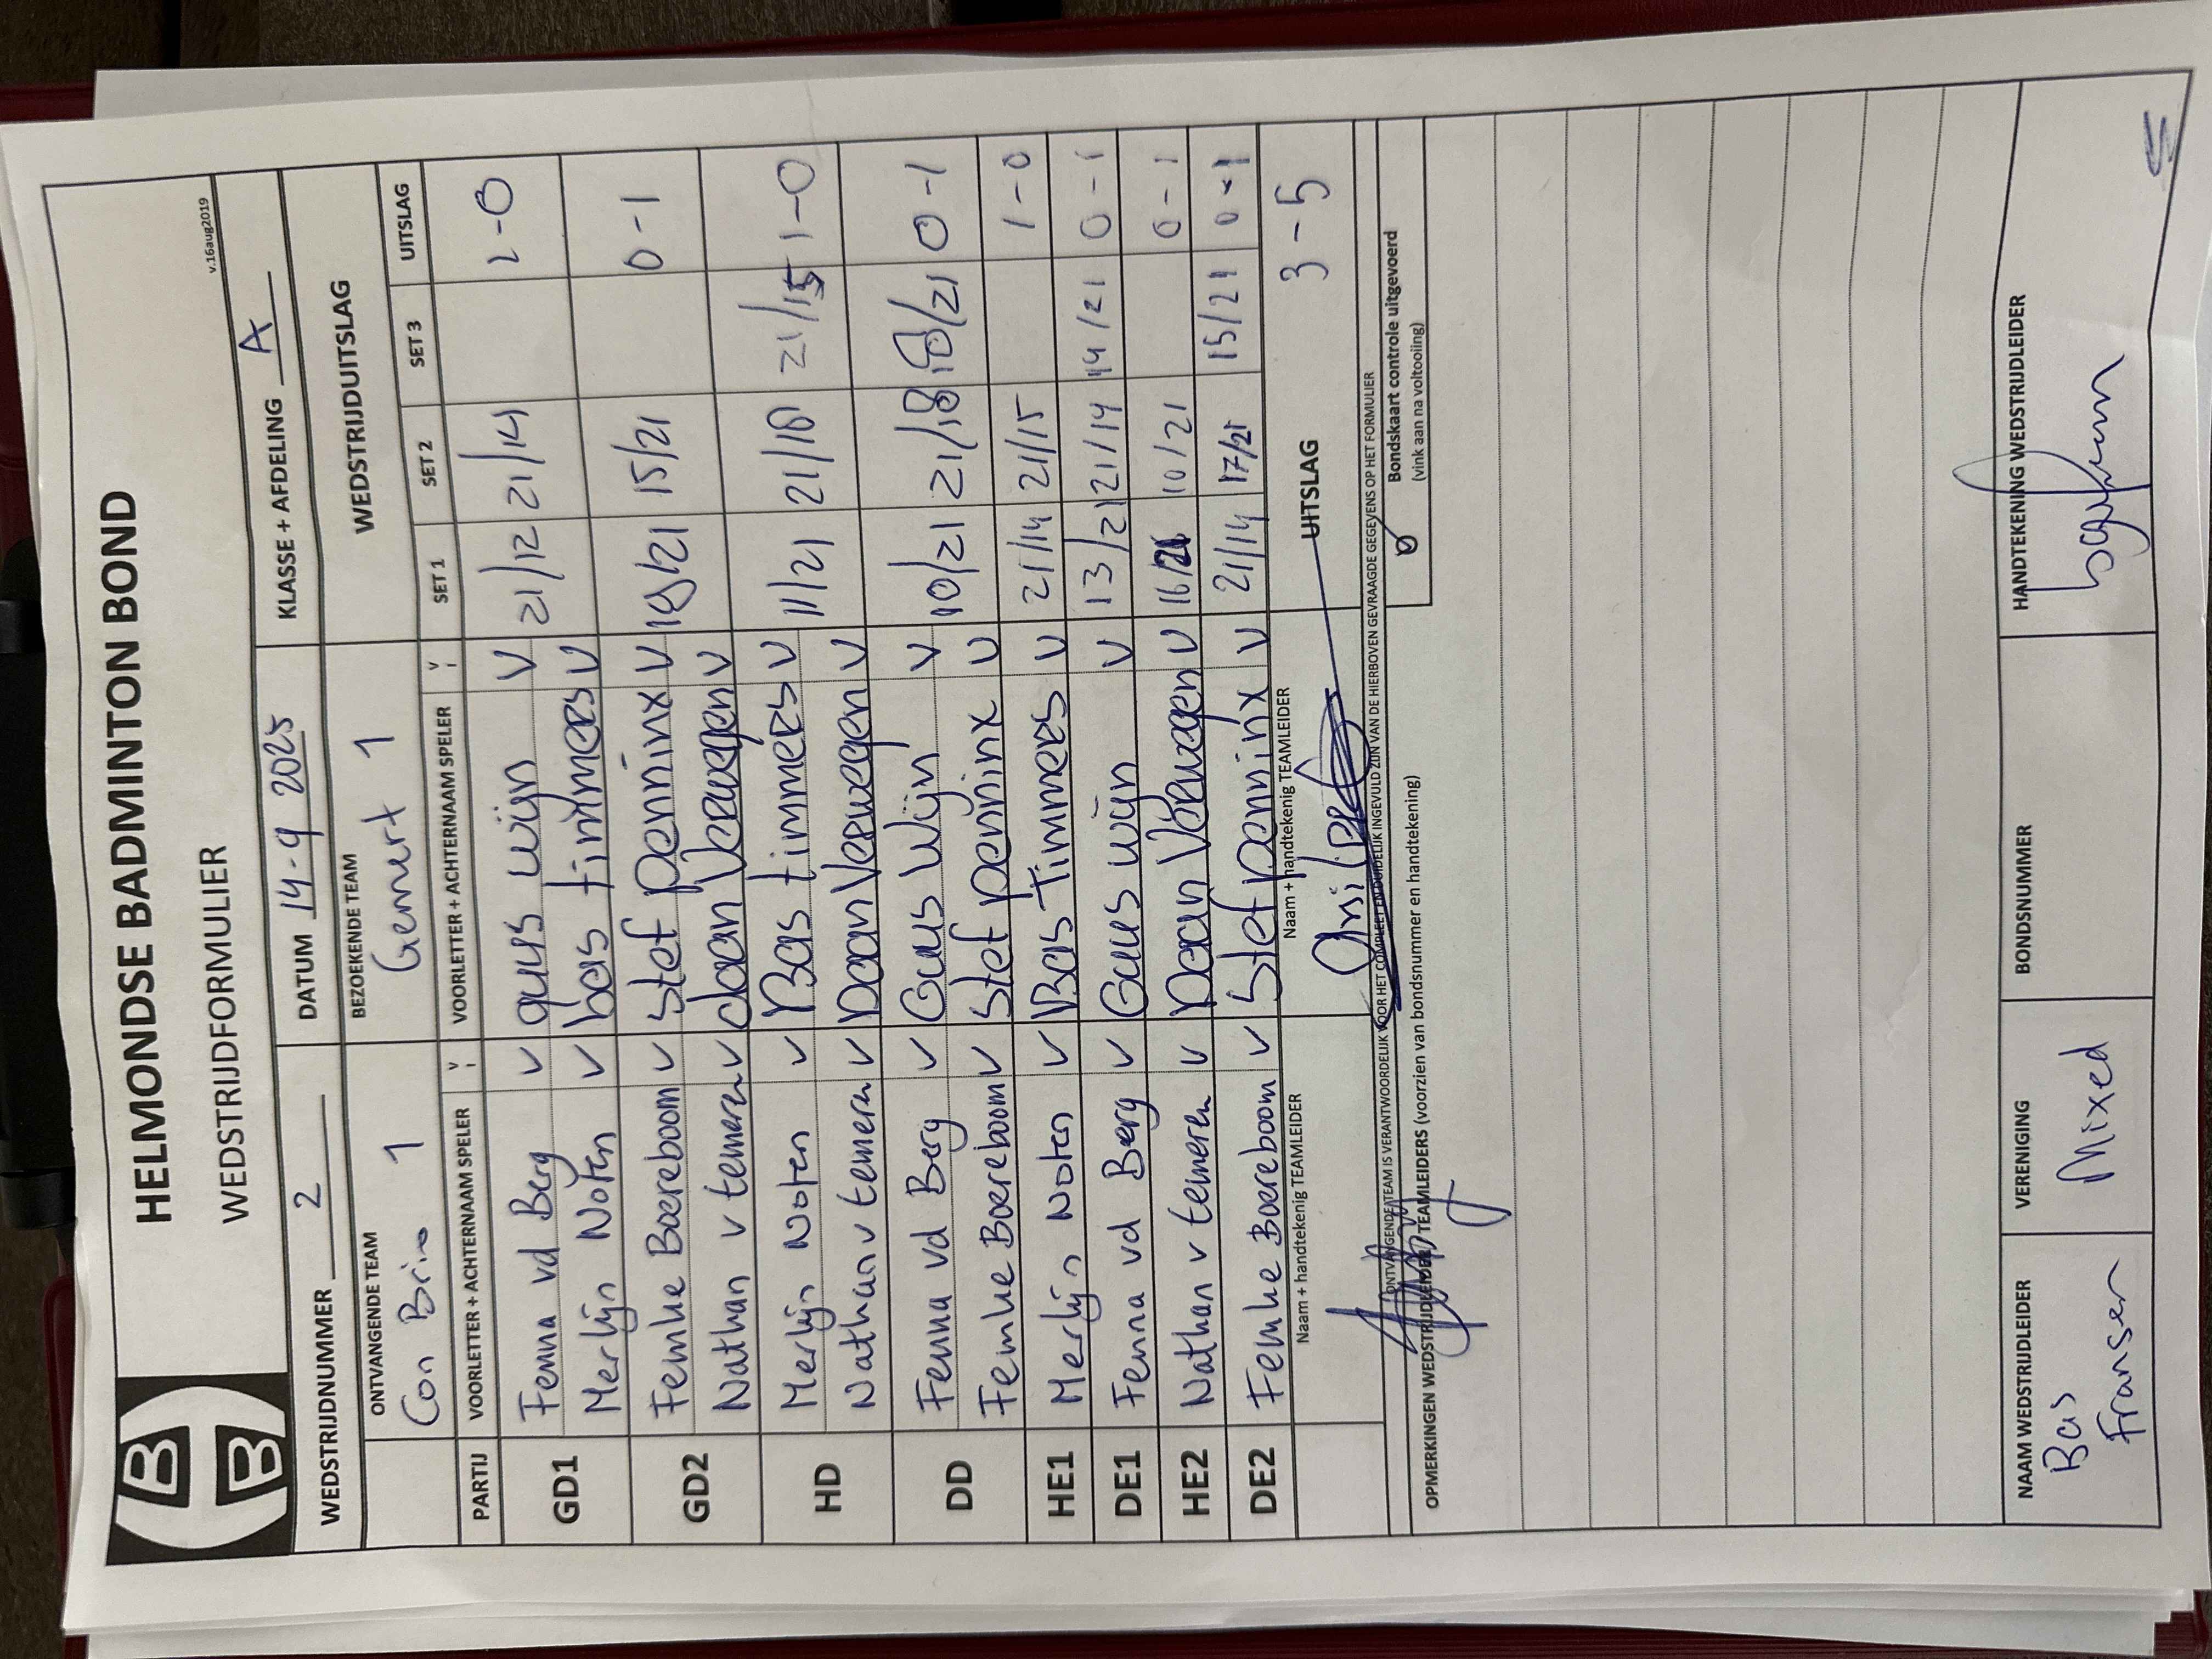 HELMONDSE BADMINTON BOND
WEDSTRIJDFORMULIER
v.16aug2019
WEDSTRIJDNUMMER 2 DATUM 14-9 2025 KLASSE + AFDELING A
ONTVANGENDE TEAM BEZOEKENDE TEAM WEDSTRIJDUITSLAG
Con Brio 1 Gemert 1
PARTIJ VOORLETTER + ACHTERNAAM SPELER V VOORLETTER + ACHTERNAAM SPELER V SET 1 SET 2 SET 3 UITSLAG
GD1 Fenna vd Berg v guus wijn v 21/12 21/14 1-0
Merlijn Noten v bas timmers v
GD2 Femke Boereboom v Stef penninx v 18/21 15/21 0-1
Nathan v temeren v daan Verwegen v
HD Merlijn Noten v Bas timmers v 11/21 21/18 21/15 1-0
Nathan v temeren v Daan Verwegen v
DD Fenna vd Berg v Guus Wijn v 10/21 21/18 /21 0-1
Femke Boereboom v Stef penninx v
HE1 Merlijn Noten v Bas Timmers v 21/14 21/15 1-0
DE1 Fenna vd Berg v Guus wijn v 13/21 21/14 14/21 0-1
HE2 Nathan v temeren v Daan Verwegen v 16/21 10/21 0-1
DE2 Femke Boereboom v Stef penninx v 21/14 17/21 15/21 0-1
Naam + handtekenig TEAMLEIDER Naam + handtekenig TEAMLEIDER UITSLAG 3-5
ONTVANGENDE TEAM IS VERANTWOORDELIJK VOOR HET COMPLEET EN DUIDELIJK INGEVULD ZIJN VAN DE HIERBOVEN GEVRAAGDE GEGEVENS OP HET FORMULIER
Bondskaart controle uitgevoerd
(vink aan na voltooiing)
OPMERKINGEN WEDSTRIJDLEIDER / TEAMLEIDERS (voorzien van bondsnummer en handtekening)
NAAM WEDSTRIJDLEIDER VERENIGING BONDSNUMMER HANDTEKENING WEDSTRIJDLEIDER
Bas Mixed
Fransen